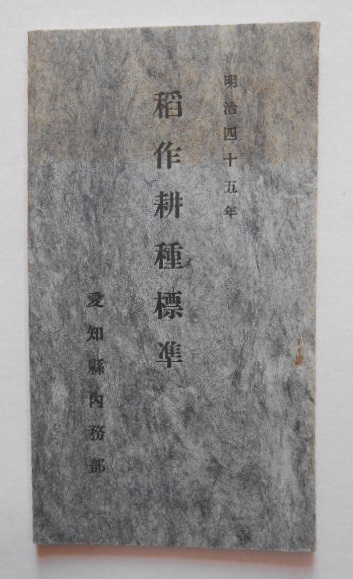 明治四十五年
稻作耕種標準
愛知縣內務部